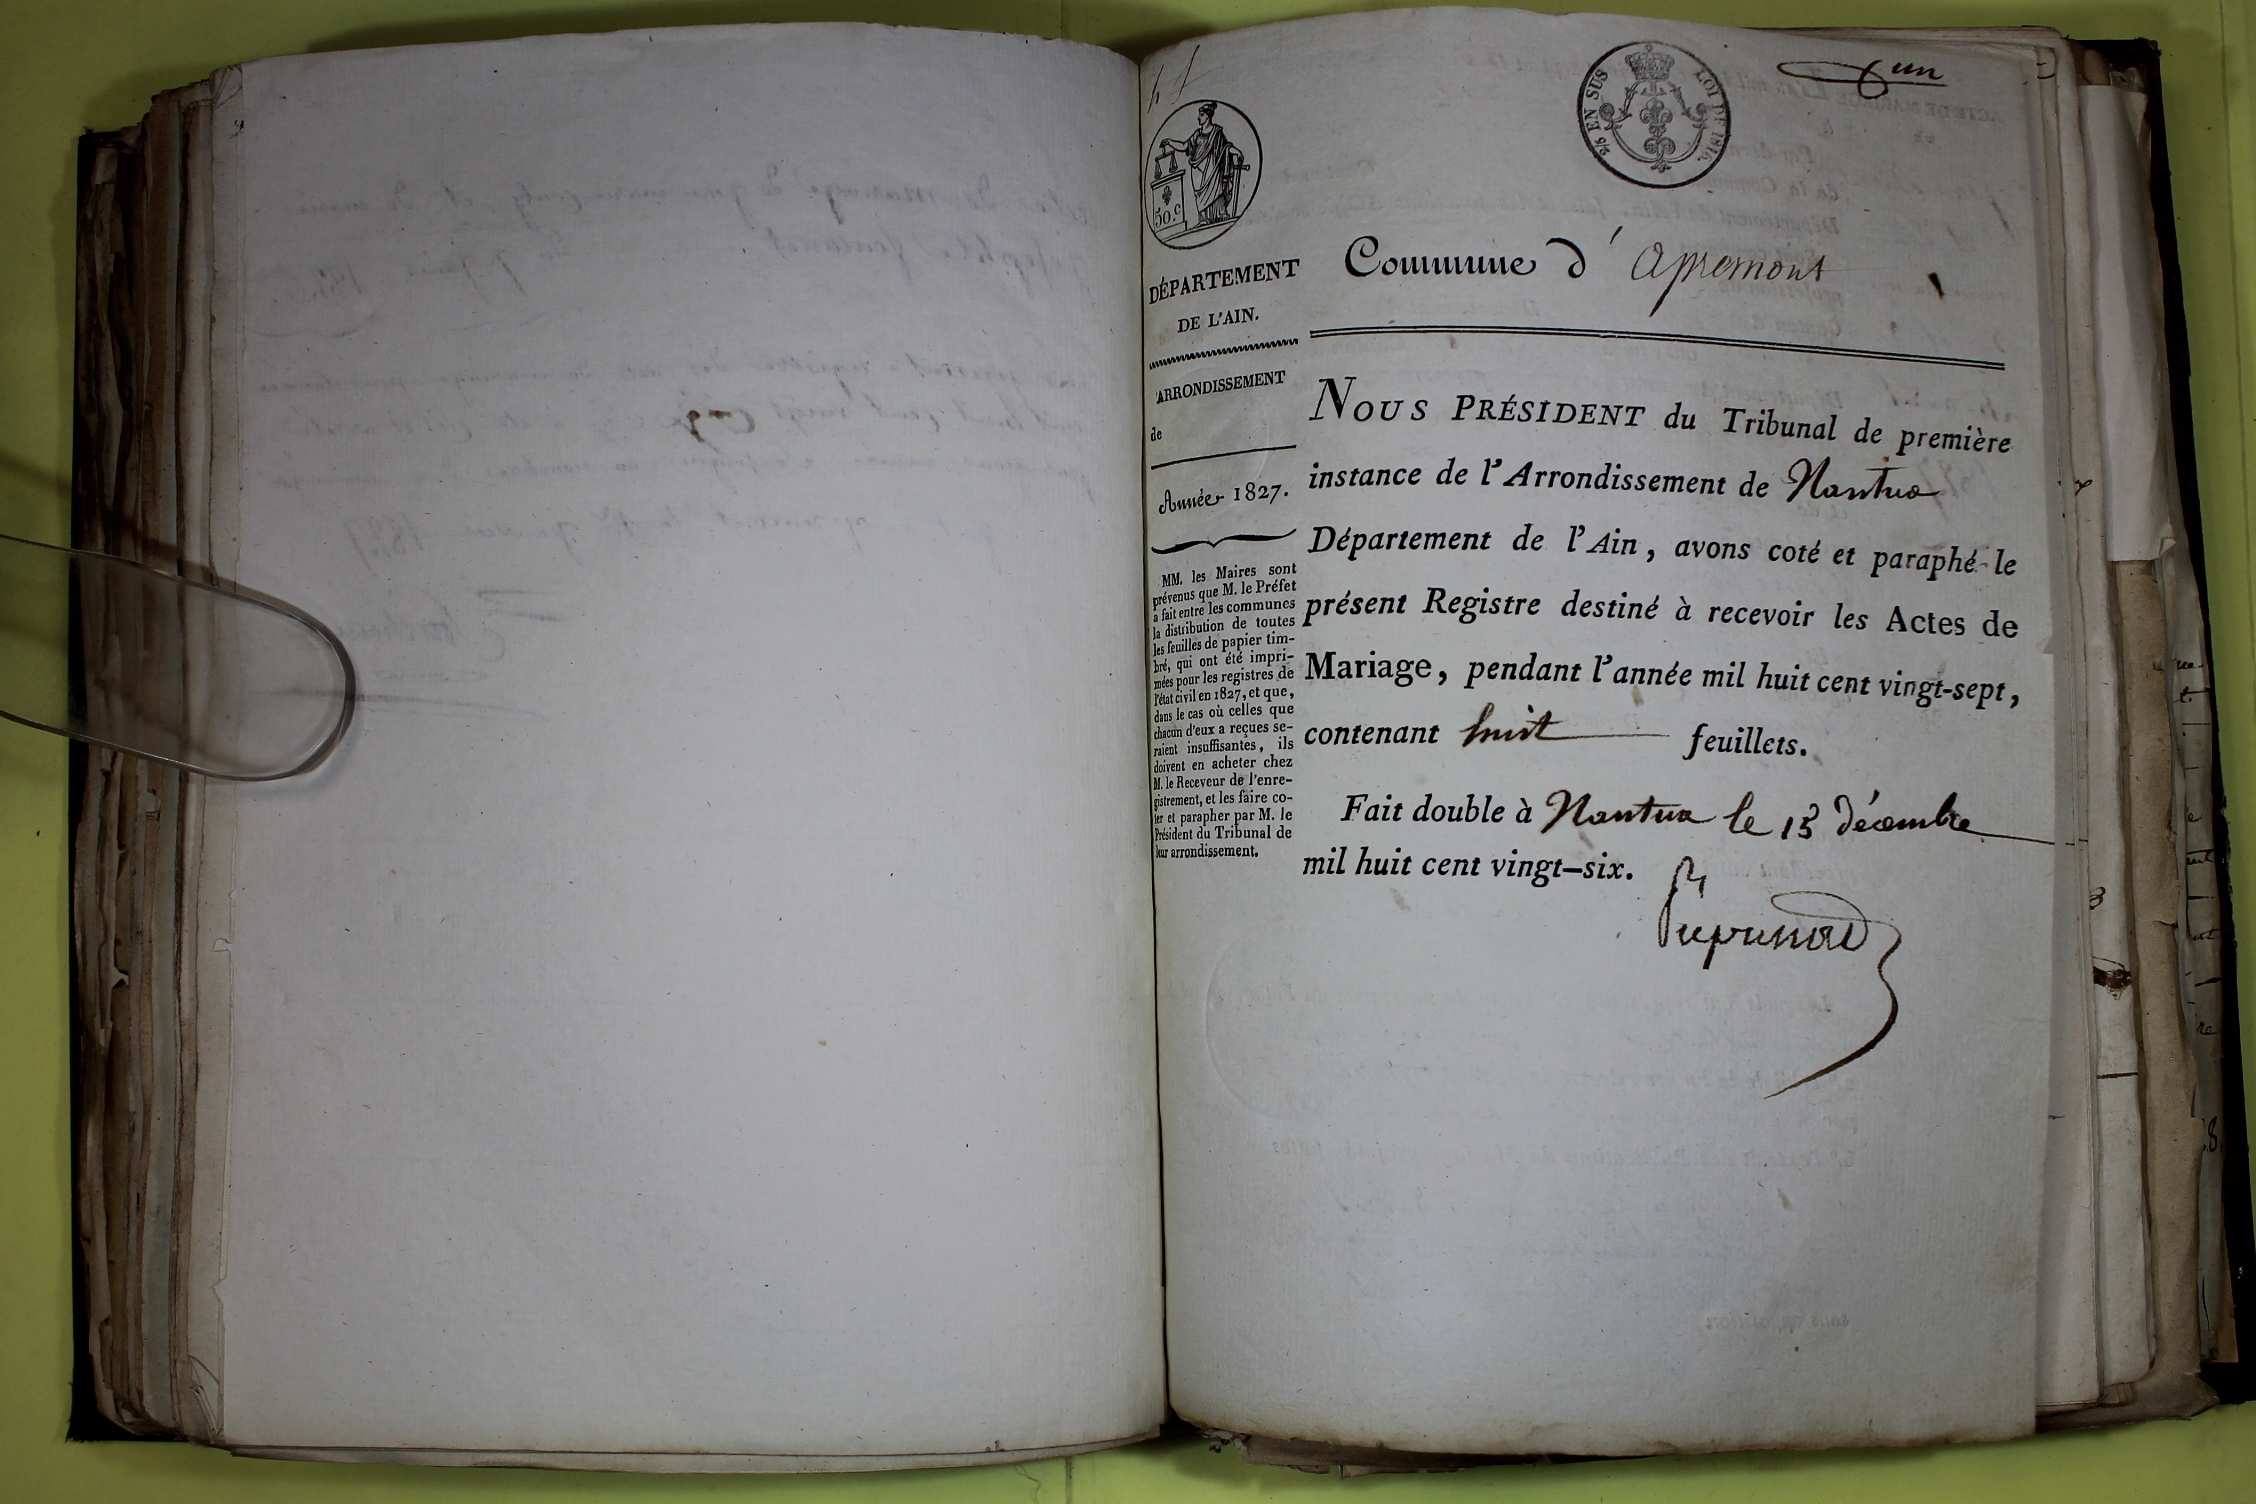 un
5/5 EN SUS LOI DE 1816.
50.c
DÉPARTEMENT
DE L'AIN.
ARRONDISSEMENT
de
Année 1827.
MM. les Maires sont
prévenus que M. le Préfet
a fait entre les communes
la distribution de toutes
les feuilles de papier tim-
bré, qui ont été impri-
mées pour les registres de
l'état civil en 1827, et que,
dans le cas où celles que
chacun d'eux a reçues se-
raient insuffisantes, ils
doivent en acheter chez
M. le Receveur de l'enre-
gistrement, et les faire co-
ter et parapher par M. le
Président du Tribunal de
leur arrondissement.
Commune d' apremont
NOUS PRÉSIDENT du Tribunal de première
instance de l'Arrondissement de Nantua
Département de l'Ain, avons coté et paraphé le
présent Registre destiné à recevoir les Actes de
Mariage, pendant l'année mil huit cent vingt-sept,
contenant huit feuillets.
Fait double à Nantua le 15 décembre
mil huit cent vingt-six.